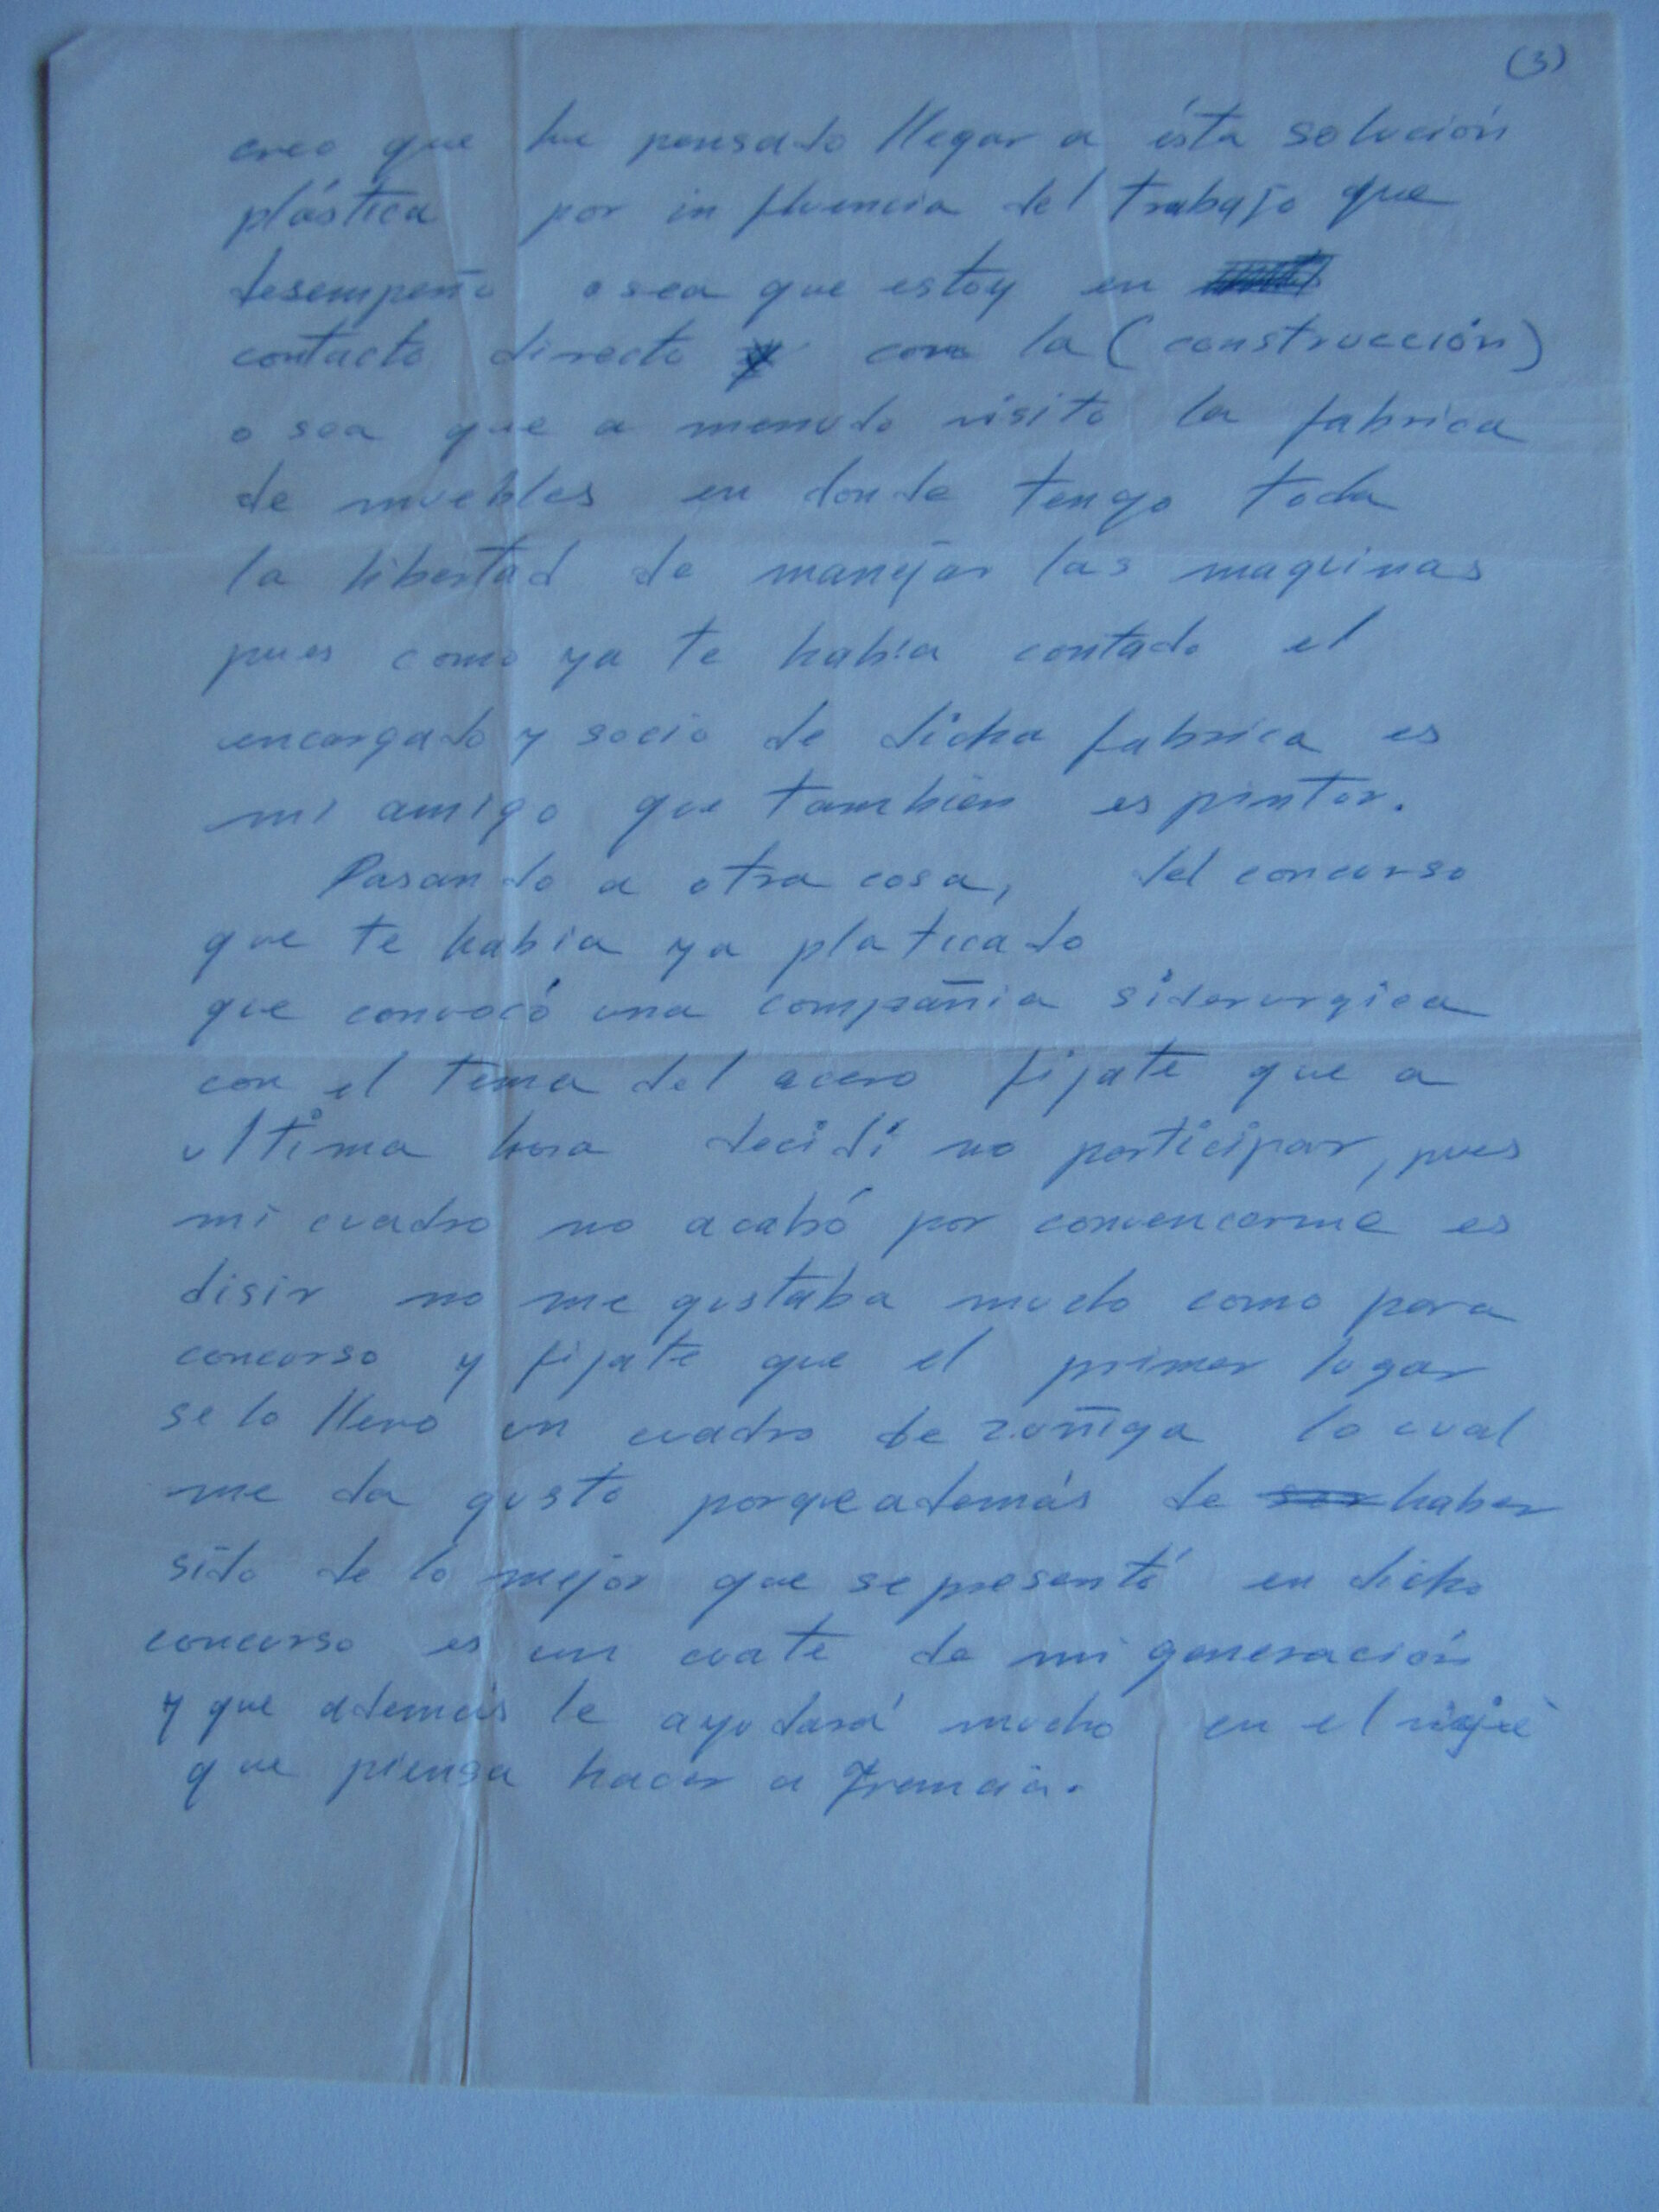 (3)
creo que he pensado llegar a ésta solución
plástica por influencia del trabajo que
desempeño o sea que estoy en
contacto directo con la (construcción)
o sea que a menudo visito la fabrica
de muebles en donde tengo toda
la libertad de manejar las maquinas
pues como ya te habia contado el
encargado y socio de dicha fabrica es
mi amigo que tambien es pintor.
Pasando a otra cosa, del concurso
que te habia ya platicado
que convocó una compañia siderurgica
con el tema del acero fijate que a
ultima hora decidi no participar, pues
mi cuadro no acabó por convencerme es
disir no me gustaba mucho como para
concurso y fijate que el primer lugar
se lo llevo un cuadro de zuñiga lo cual
me da gusto porque además de ser haber
sido de lo mejor que se presentó en dicho
concurso es un cuate de mi generación
y que además le ayudará mucho en el viaje
que piensa hacer a Francia.